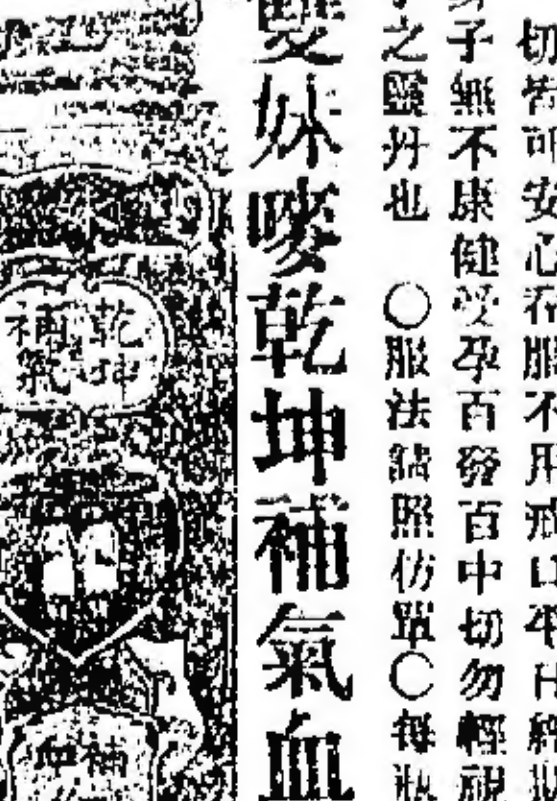 切皆可安心吞服不用戒口平日經
子無不康健受孕百發百中切勿輕視
之靈丹也　○服法請照仿單○每瓶
雙妹嘜乾坤補氣血
乾坤
補氣
補血